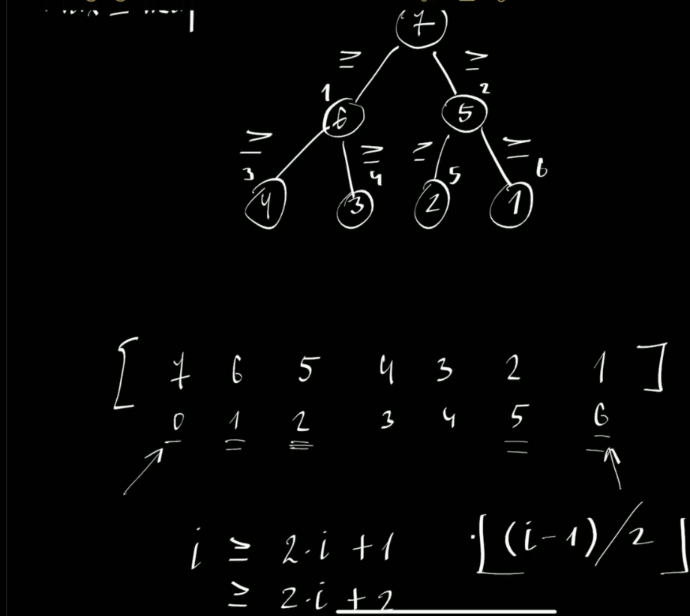 7
≥ ≥
1 2
6 5
≥ ≥ ≥ ≥
3 4 5 6
4 3 2 1
[ 7 6 5 4 3 2 1 ]
0 1 2 3 4 5 6
i ≥ 2·i + 1 ⌊(i-1)/2⌋
≥ 2·i + 2